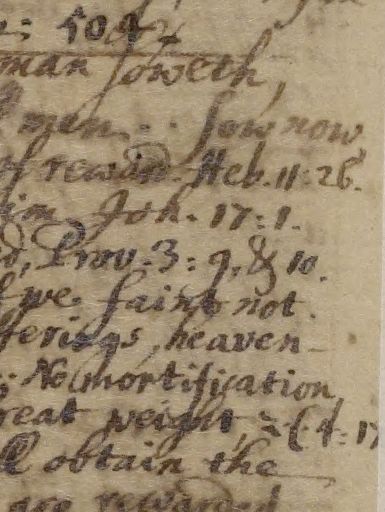 : 504
man soweth,
men. . sow now
of reward. Heb. 11: 26.
him Joh. 17: 1.
Prov. 3: 9, & 10.
we faint not.
ferings, heaven-
; No mortification,
reat weight, = (4: 17
obtain the
are rewarded